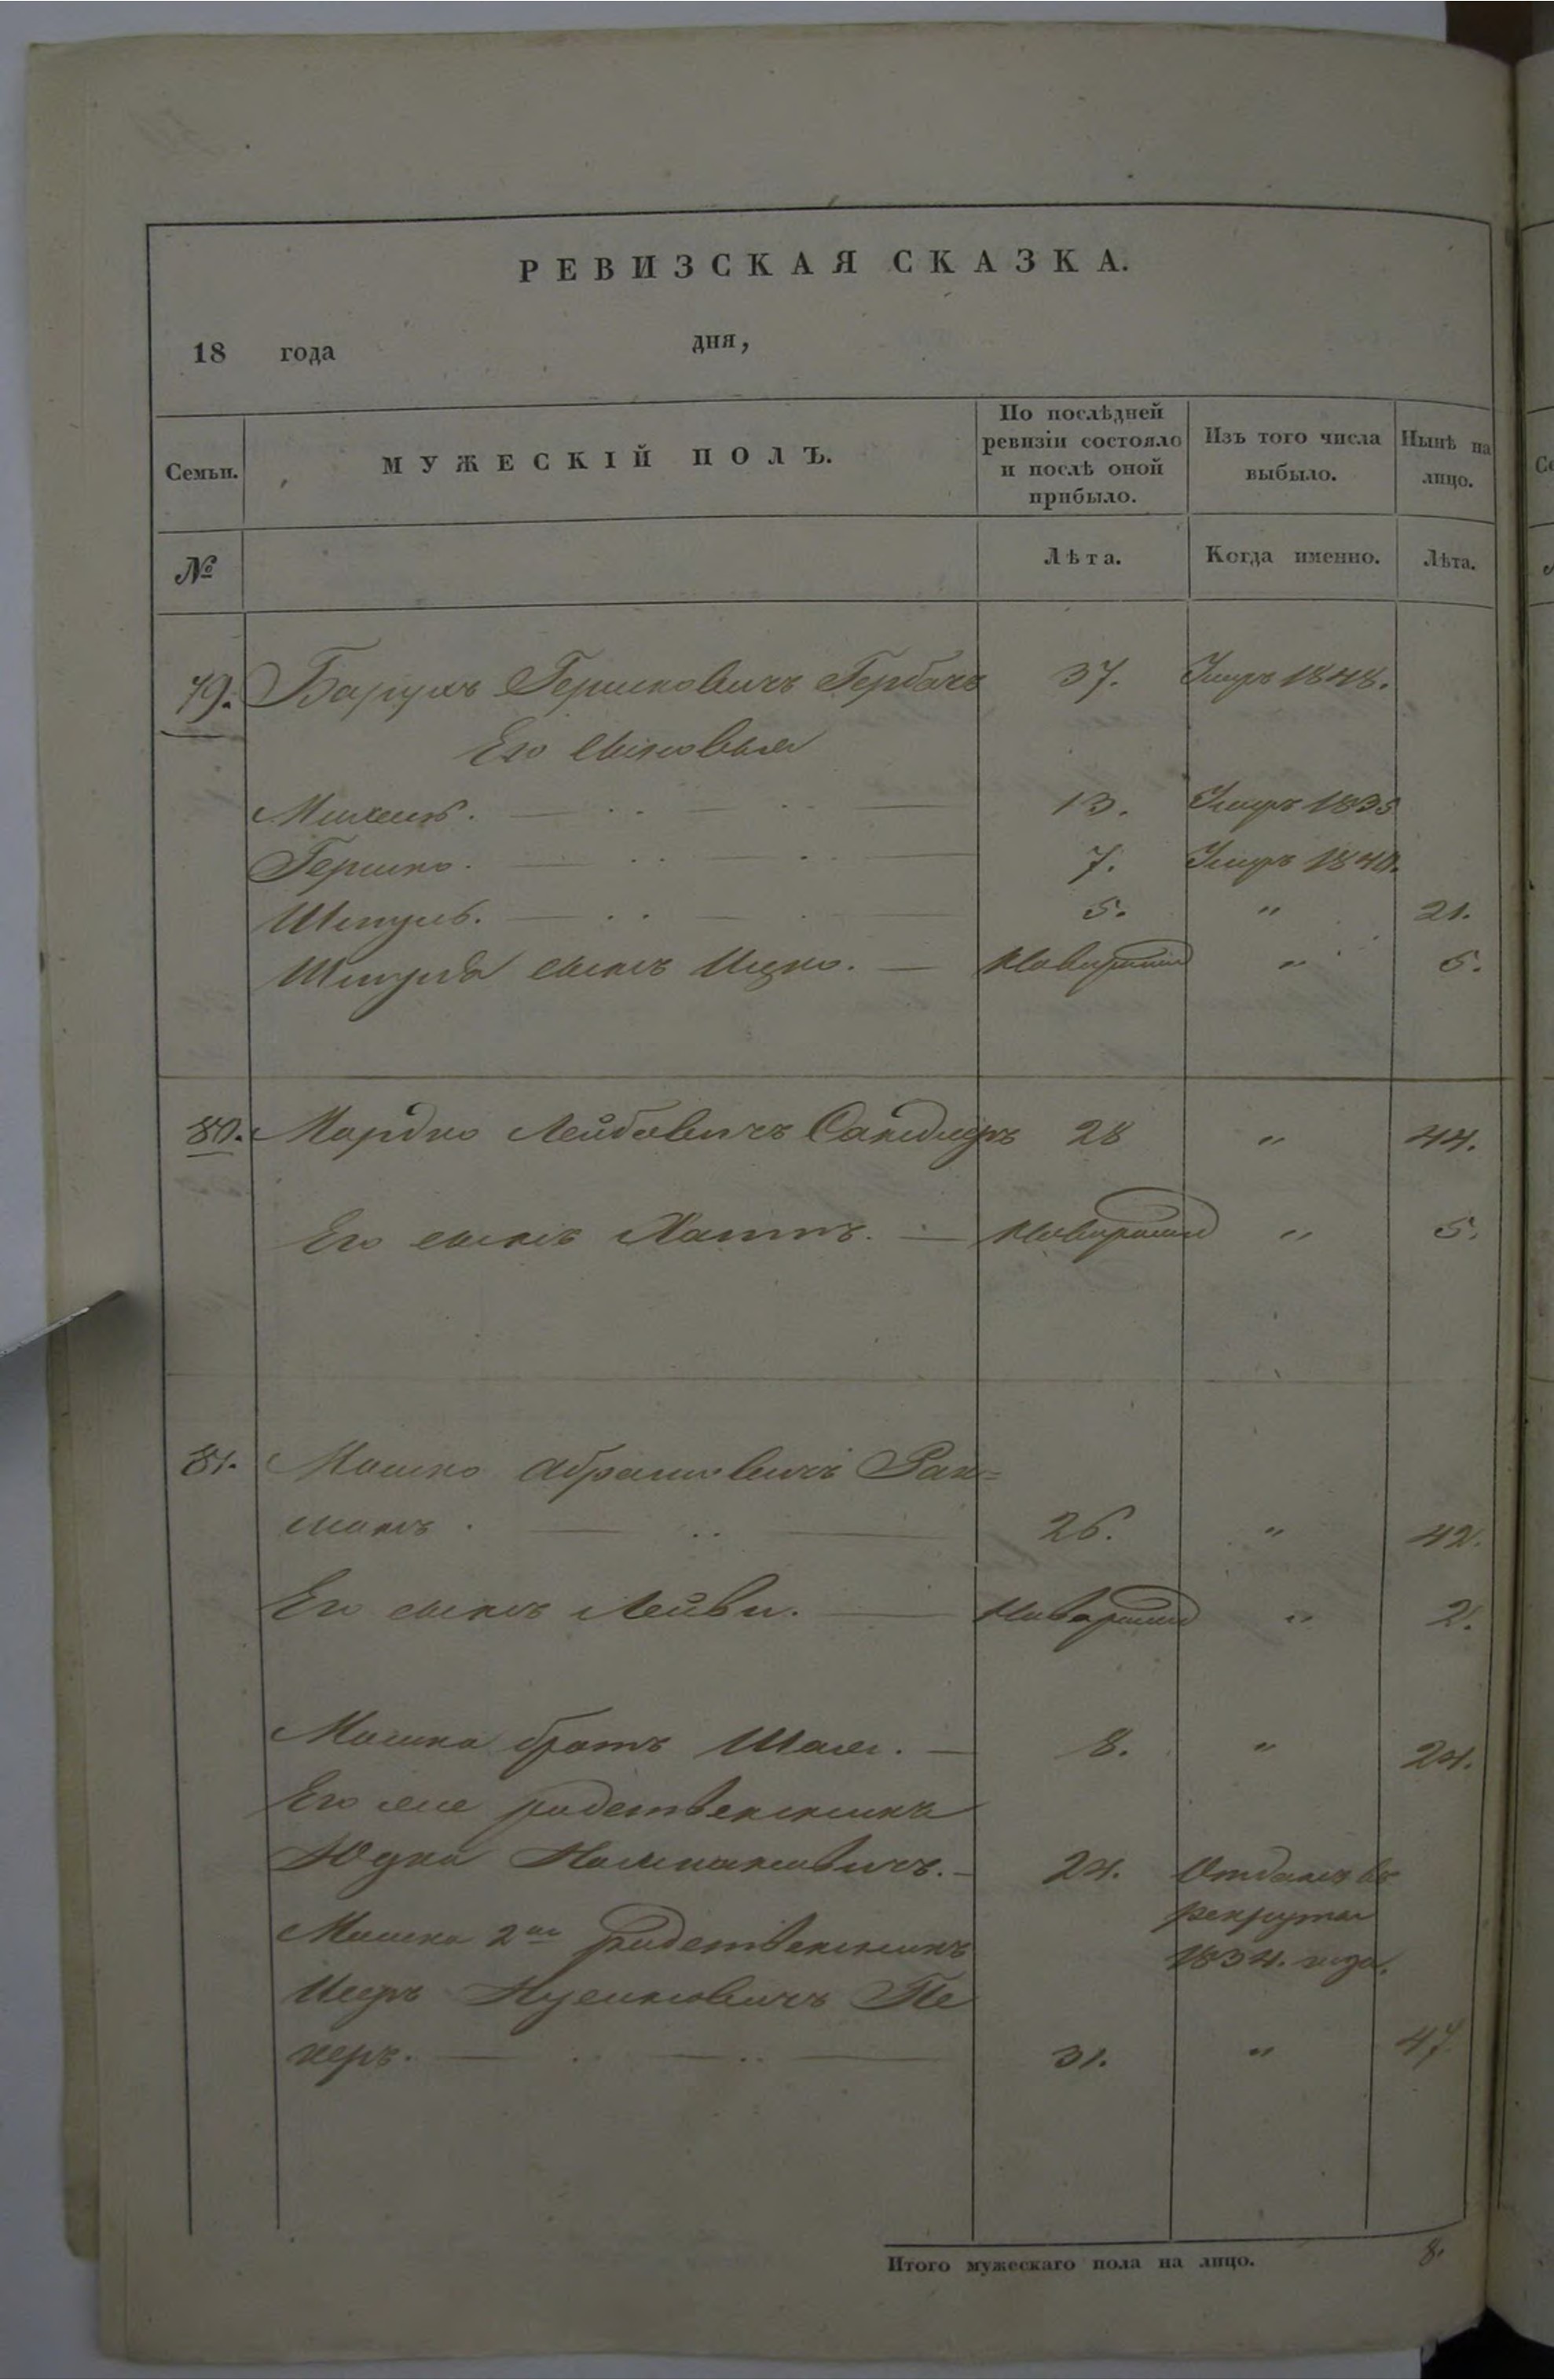 РЕВИЗСКАЯ СКАЗКА.
18 года дня,
Семьи. МУЖЕСКІЙ ПОЛЪ. По послѣдней ревизіи состояло и послѣ оной прибыло. Изъ того числа выбыло. Нынѣ на лицо.
№ Лѣта. Когда именно. Лѣта.
79. Барухъ Гершковичъ Гербачъ 37. Умеръ 1848.
Его сыновья
Михель. 13. Умеръ 1835
Гершко. 7. Умеръ 1840.
Шмуль. 5. " 21.
Шмуля сынъ Ицко. Новорожд " 5.
80. Мордко Лейбовичъ Сандлеръ 28 " 44.
Его сынъ Хаимъ. Новорожд " 5.
81. Мошко Абрамовичъ Рак=
манъ. 26. " 42.
Его сынъ Лейви. Новорожд " 2.
Мошка братъ Шая. 8. " 24.
Его же родственникъ
Юдка 24. Отданъ въ
рекруты
Мошка 2й родственникъ 1834. года.
Исеръ Нусиновичъ Пе
керъ. 31. " 47.
Итого мужескаго пола на лицо. 8.